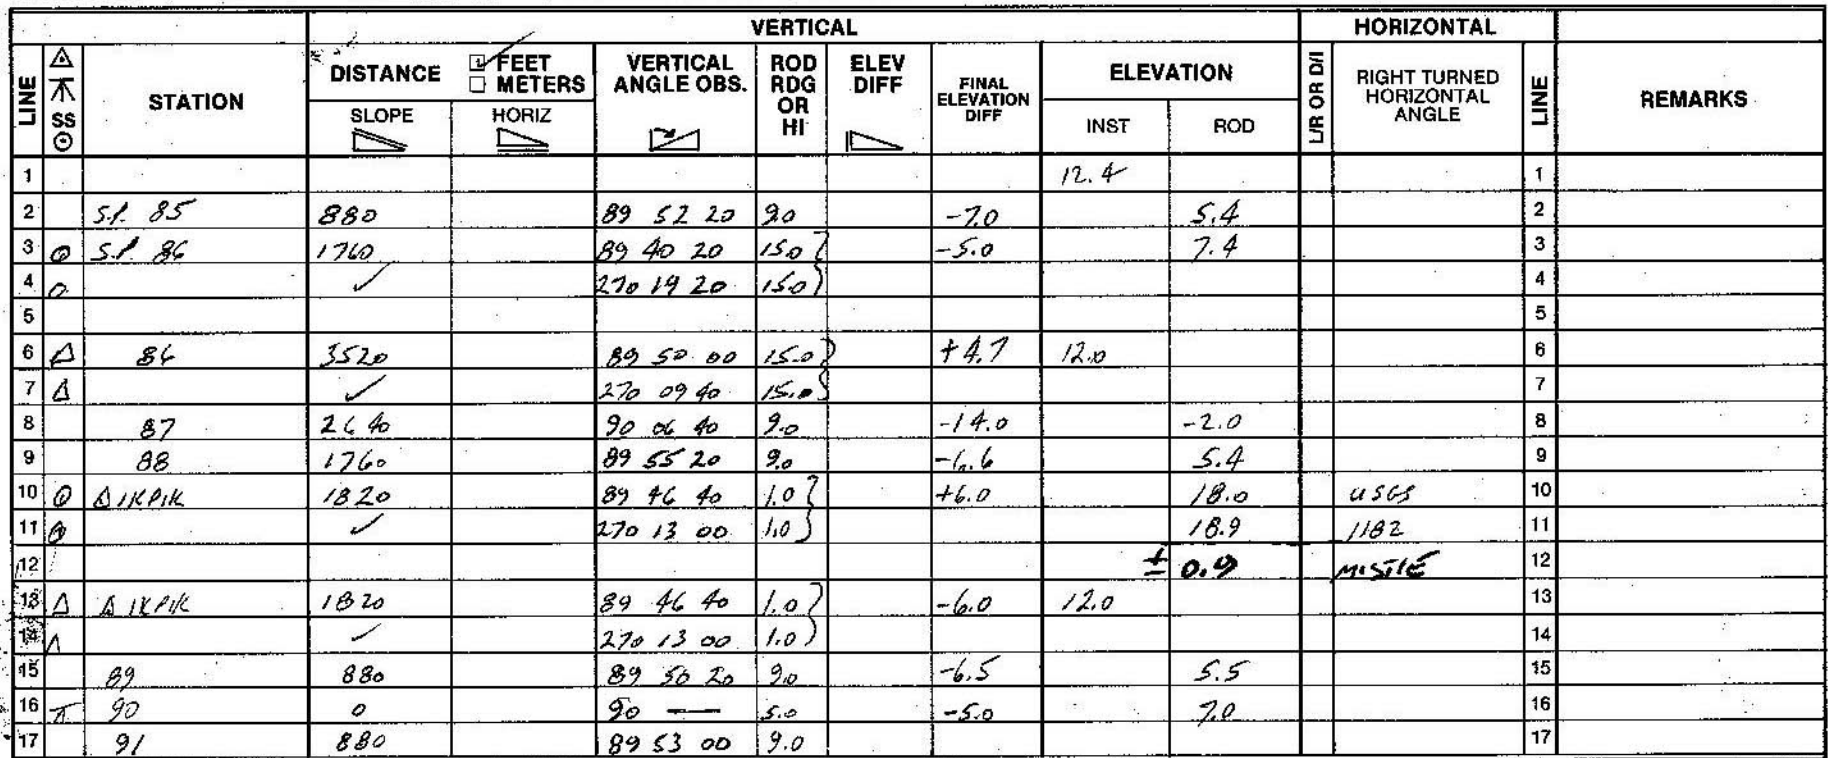 VERTICAL HORIZONTAL
LINE SS STATION DISTANCE FEET METERS VERTICAL ANGLE OBS. ROD RDG OR HI ELEV DIFF FINAL ELEVATION DIFF ELEVATION L/R OR D/I RIGHT TURNED HORIZONTAL ANGLE LINE REMARKS
SLOPE HORIZ INST ROD
1 12.4 1
2 S.P. 85 880 89 52 20 9.0 -7.0 5.4 2
3 S.P. 86 1760 89 40 20 15.0 -5.0 7.4 3
4 ✓ 270 19 20 15.0 4
5 5
6 Δ 86 3520 89 50 00 15.0 +4.7 12.0 6
7 Δ ✓ 270 09 40 15.0 7
8 87 2640 90 06 40 9.0 -14.0 -2.0 8
9 88 1760 89 55 20 9.0 -6.6 5.4 9
10 Δ IKPIK 1820 89 46 40 1.0 +6.0 18.0 USGS 10
11 ✓ 270 13 00 1.0 18.9 1182 11
12 ± 0.9 MISTIE 12
13 Δ Δ IKPIK 1820 89 46 40 1.0 -6.0 12.0 13
14 Δ ✓ 270 13 00 1.0 14
15 89 880 89 50 20 9.0 -6.5 5.5 15
16 90 0 90 — 5.0 -5.0 7.0 16
17 91 880 89 53 00 9.0 17